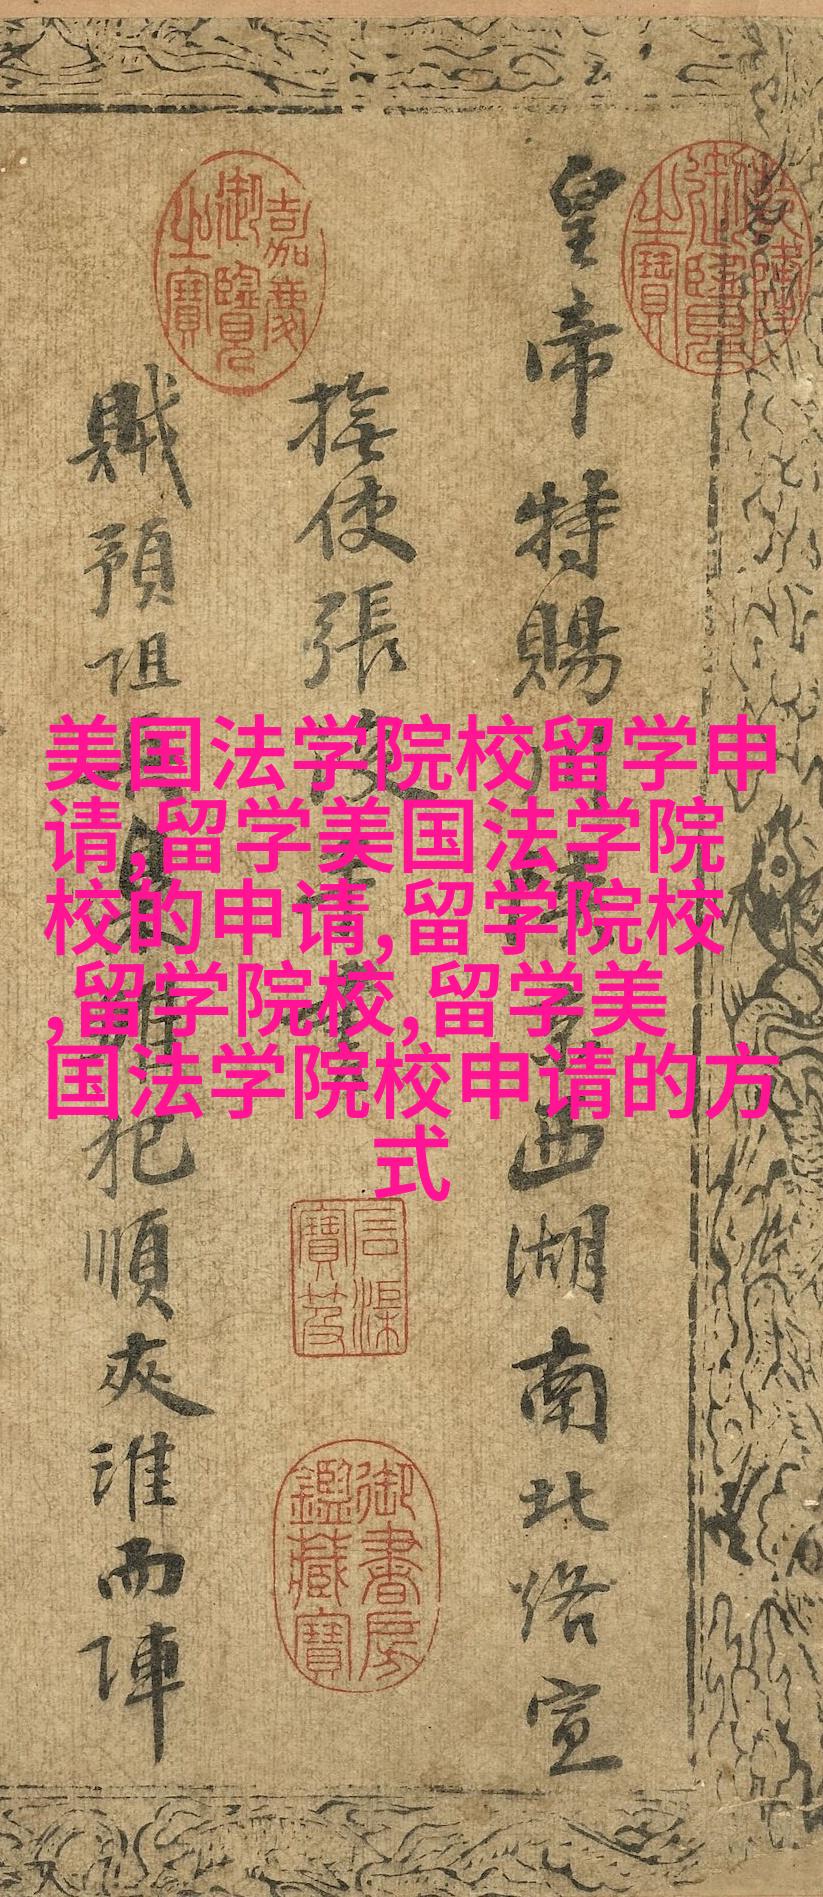 美国法学院校留学申
请,留学美国法学院
校的申请,留学院校
,留学院校,留学美
国法学院校申请的方
式
皇帝特賜 西湖南北 宣
撫使張
賊預阻 犯順夾淮而陣
嘉慶御覽之寶
御書房鑑藏寶